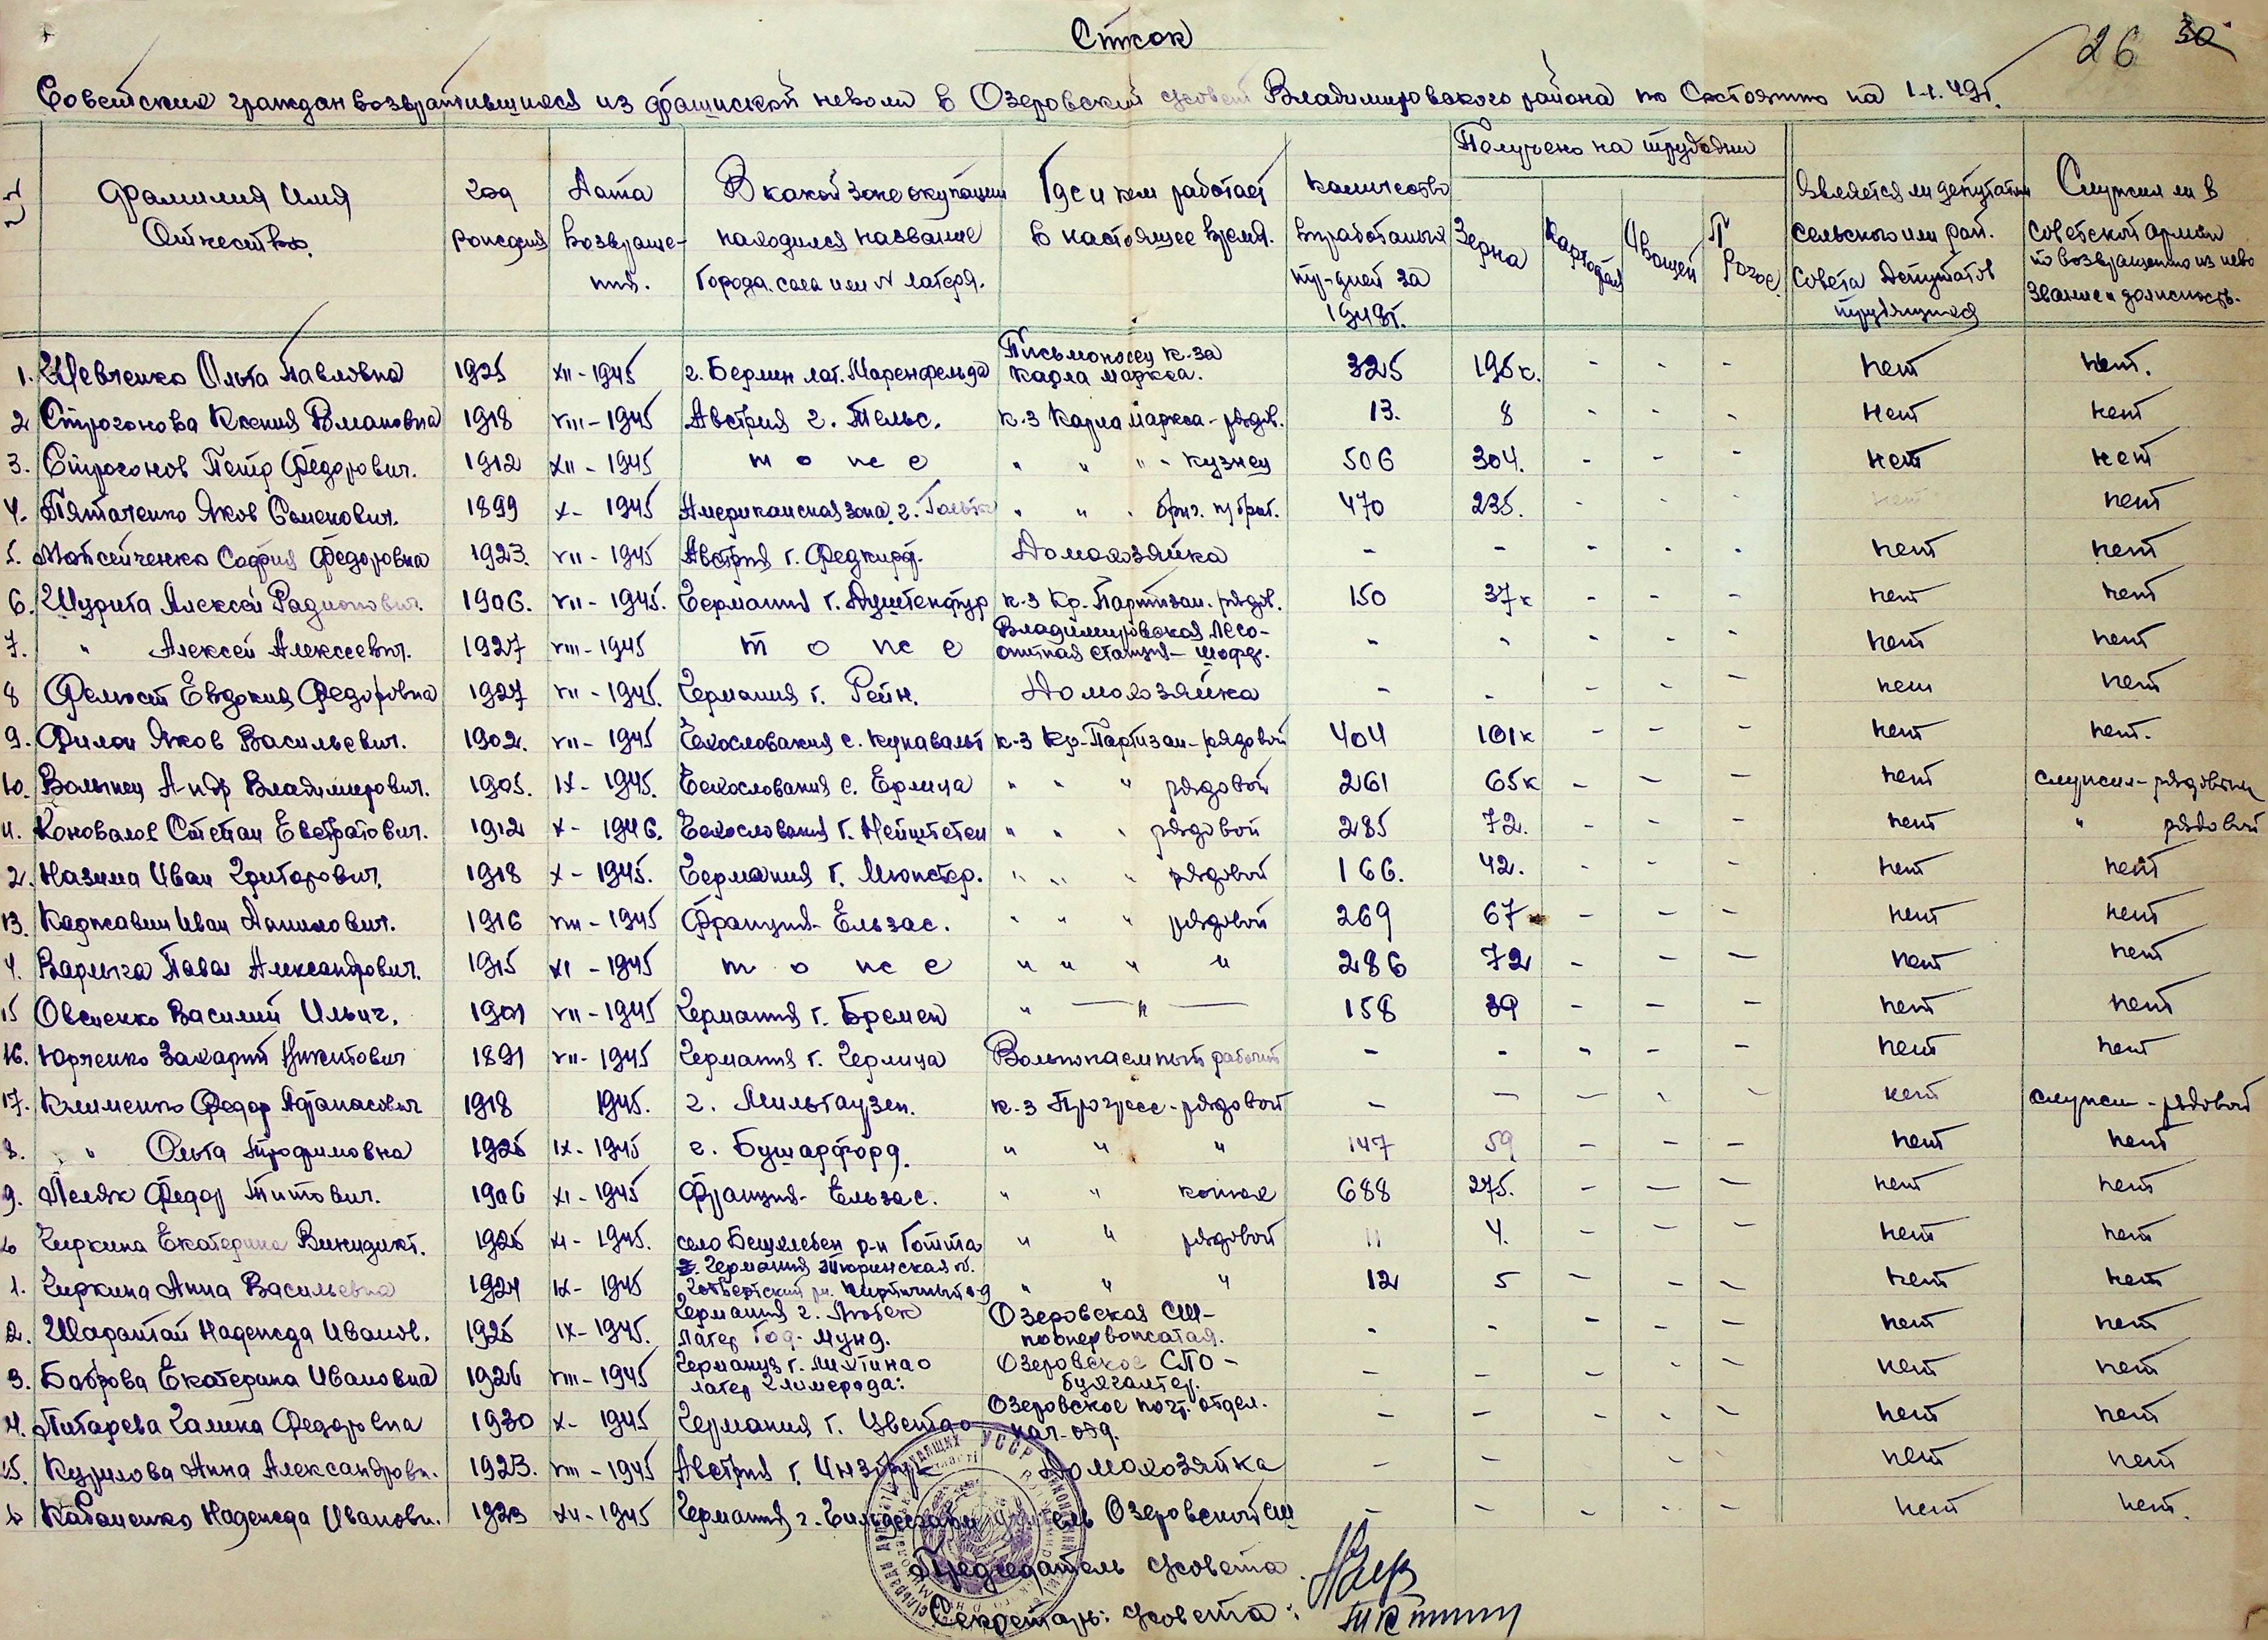 26 30
Список
Советских граждан возвратившихся из фашиской неволи в Озеровский с/совет Владимировского района по состоянию на 1-1.49г.
Фамилия Имя Отчество
год рождения
Дата возвраще-ния.
В какой зоне окупации находился название города, села или № лагеря.
Где и кем работает в настоящее время.
Количество выработаных тр-дней за 1948г.
Получено на трудодни
Зерна
Картофел
Овощей
Является ли депутатом сельского или рай. совета депутатов трудящихся
Служил ли в советской армии по возвращению из нево звание и должность.
1. Шевченко Ольга Павловна 1925 XII-1945 г. Берлин лаг. Маренфельда Письмоносец к-за Карла Маркса. 325 195к. - - - нет нет.
2 Строгонова Ксения Романовна 1918 VIII-1945 Австрия г. Тельс. к-з Карла Маркса - рядов. 13. 8 - - - нет нет
3. Строгонов Петр Федорович. 1912 XII-1945 т о ж е " " " - кузнец 506 304. - - - нет нет
4. Пятаченко Яков Семенович. 1899 X-1945 Американская зона, г. " " " бриг. 470 235. - - - нет нет
5. Мойсейченко София Федоровна 1923. VII-1945 Австрия г. Фелкирх. Домохозяйка - - - - - нет нет
6. Шурига Алексей Радионович. 1906. VII-1945. Германия г. к-з Кр. Партизан. рядов. 150 37к - - - нет нет
7. " Алексей Алексеевич. 1927 VIII-1945 т о ж е Владимировская лесо-опитная станция - шофер. - - - - - нет нет
8 Фельост Евдокия Федоровна 1927 VII-1945. Германия г. Рейн. Домохозяйка - - - - - нет нет
9. Филон Яков Васильевич. 1902. VII-1945 Чехословакия с. Кунавальт к-з Кр-Партизан - рядовой 404 101к - - - нет нет.
10. Волынец А-ндр Владимирович. 1905. IX-1945. Чехословакия с. Ерлица " " " рядовой 261 65к - - - нет служил - рядовым
11. Коновалов Степан Евстратович. 1912 X-1946. Чехословакия г. Нейштетен " " " рядовой 285 72. - - - нет " рядовой
2. Назима Иван Григорович. 1918 X-1945. Германия г. Мюнстер. " " " рядовой 166. 42. - - - нет нет
13. Каржавин Иван Данилович. 1916 VIII-1945 Франция - Ельзас. " " " рядовой 269 67 - - - нет нет
4. Варыга Павел Александрович. 1915 XI-1945 т о ж е " " " " 286 72 - - - нет нет
15 Овсиенко Василий Ильич. 1901 VII-1945 Германия г. Бремен " — " — 158 39 - - - нет нет
16. Юрченко Захарий Никитович 1891 VII-1945 Германия г. Герлица Вольнонаемный рабочий - - - - - нет нет
17. Клименко Федор Афанасович 1918 1945. г. Мильгаузен. к-з Прогресс - рядовой - - - - - нет служил - рядовой
8. " Ольга Трофимовна 1925 IX-1945 с. Бушарфорд. " " " 147 59 - - - нет нет
9. Пеляк Федор Титович. 1906 XI-1945 Франция - Ельзас. " " конюх 688 275. - - - нет нет
20 Чиркина Екатерина Винидикт. 1925 XI-1945. село Бешлебен р-н Готта " " рядовой 11 4. - - - нет нет
1. Чиркина Анна Васильевна 1924 IX-1945 Германия Тюринская об. Кирпичный з-д " " " 12 5 - - - нет нет
2. Шарапай Надежда Иванов. 1925 IX-1945. Германия г. Любек лагер Год-мунд. Озеровская СШ - пионервожатая. - - - - - нет нет
3. Боброва Екатерина Ивановна 1926 VIII-1945 Германия г. Лихтинао лагер Климерода: Озеровское СПО - бухгалтер. - - - - - нет нет
4. Питарева Галина Федоровна 1930 X-1945 Германия г. Цветао Озеровское почт. отдел. нач-отд. - - - - - нет нет
25. Курилова Анна Александровн. 1923. VIII-1945 Австрия г. Инзбрук Домохозяйка - - - - - нет нет
Кабаненко Надежда Ивановн. 1923 XII-1945 Германия г. Озеровской СШ - - - - - нет нет.
Председатель с/совета
Секретарь: с/совета:
УССР